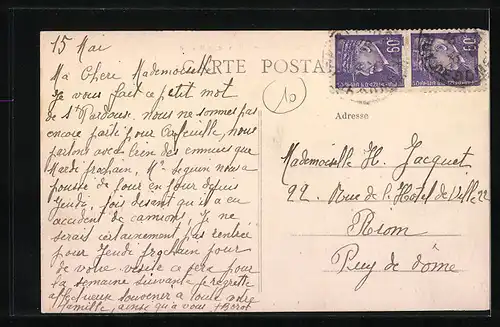 15 Mai
CARTE POSTALE
Ma Chère Mademoiselle
Je vous fait ce petit mot
de St Pardoux. nous ne sommes pas
encore parti pour nous
partons avec bien des ennuies que
Mardi prochain, Mr Seguin nous a
pousse de jour en jour depuis
Jeudi, fois disant qu'il a eu
accident de camions, Je ne
serais certainement pas rentrée
pour Jeudi prochain pour
de votre visite ce sera pour
la semaine suivante je regrette
affectueux souvenir a toute votre
famille, ainsi qu'a vous
10
Adresse
Mademoiselle H. Jacquet
22 Rue de l'Hôtel de Ville 22
Riom
Puy de dôme